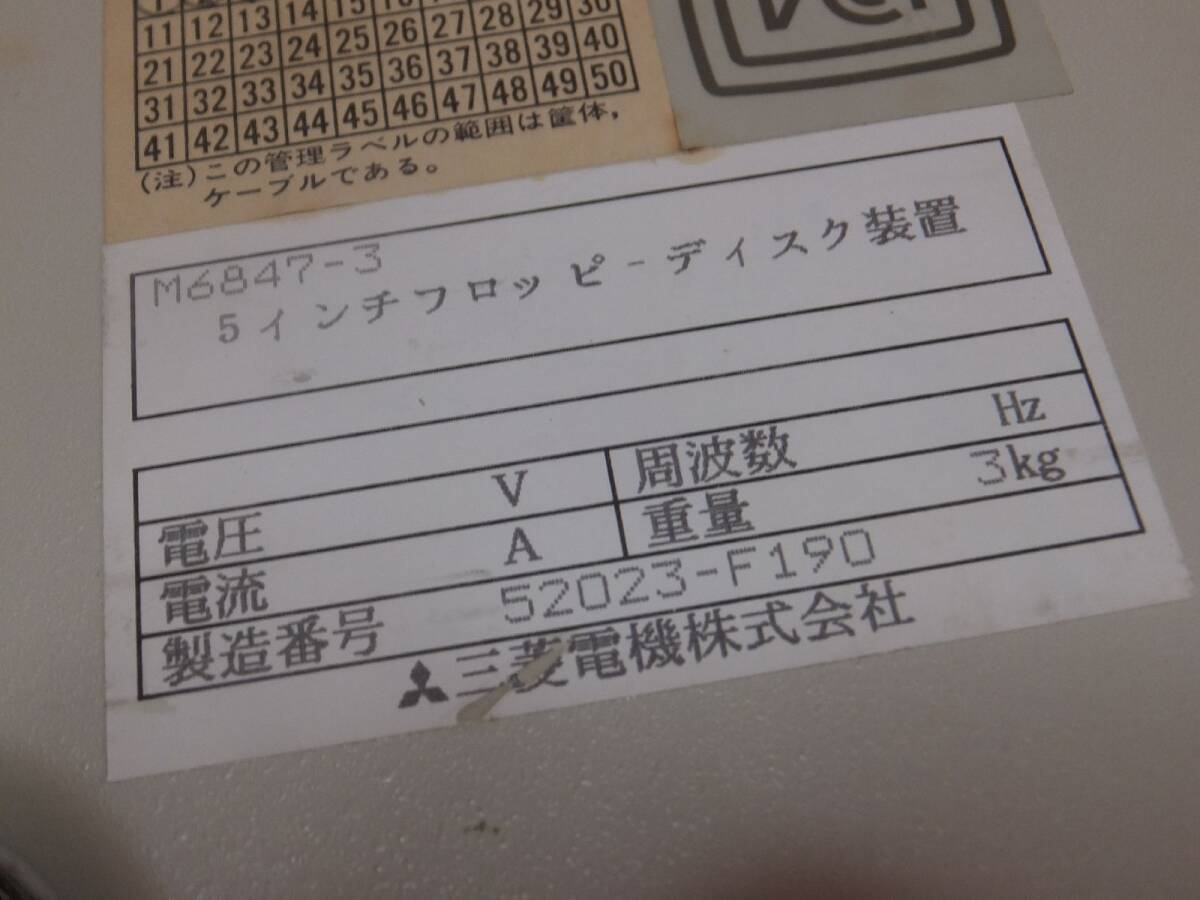 11 12 13 14 15 16 17 18 19 20
21 22 23 24 25 26 27 28 29 30
31 32 33 34 35 36 37 38 39 40
41 42 43 44 45 46 47 48 49 50
(注)この管理ラベルの範囲は筐体,
ケーブルである。
VCI
M6847-3
5インチフロッピ-ディスク装置
電圧 V 周波数 Hz
電流 A 重量 3kg
製造番号 52023-F190
三菱電機株式会社